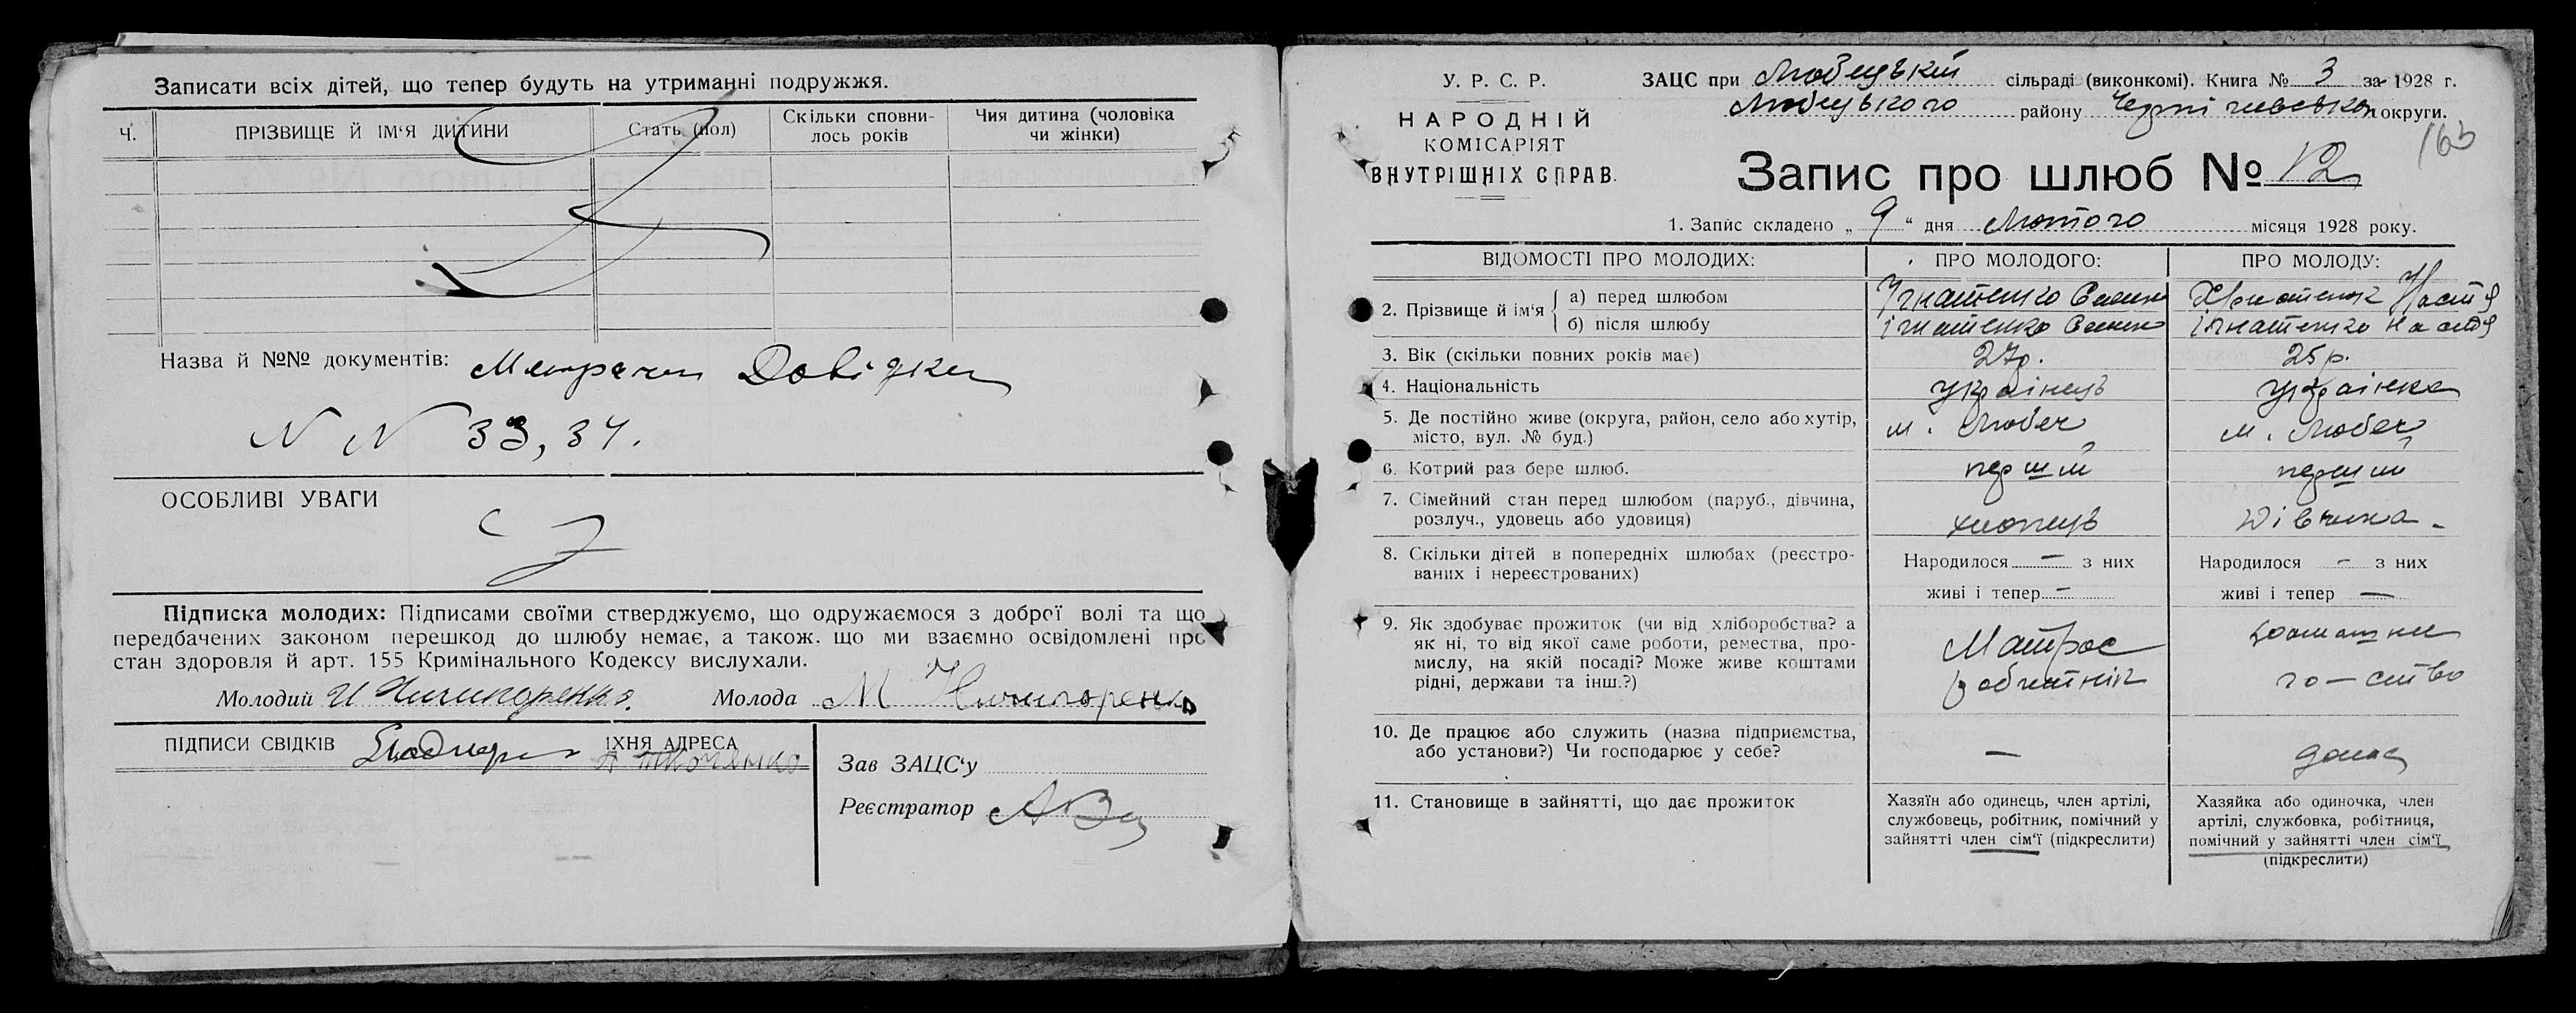 Записати всіх дітей, що тепер будуть на утриманні подружжя.
Ч.
ПРІЗВИЩЕ Й ІМ'Я ДИТИНИ
Стать (пол)
Скільки сповни-
лось років
Чия дитина (чоловіка
чи жінки)
Назва й №№ документів: Метрачни Довідки
N N 33, 34.
ОСОБЛИВІ УВАГИ
Підписка молодих: Підписами своїми стверджуємо, що одружаємося з доброї волі та що
передбачених законом перешкод до шлюбу немає, а також. що ми взаємно освідомлені про
стан здоровля й арт. 155 Кримінального Кодексу вислухали.
Молодий Молода
ПІДПИСИ СВІДКІВ ЇХНЯ АДРЕСА
Зав ЗАЦС'у
Реєстратор
У. Р. С. Р.
НАРОДНІЙ
КОМІСАРІЯТ
ВНУТРІШНІХ СПРАВ.
ЗАЦС при Любецькій сільраді (виконкомі). Книга № 3 за 1928 г.
Любецького району Чернігівської округи.
163
Запис про шлюб № 12
1. Запис складено „ 9 “ дня Лютого місяця 1928 року.
ВІДОМОСТІ ПРО МОЛОДИХ: ПРО МОЛОДОГО: ПРО МОЛОДУ:
2. Прізвище й ім'я
а) перед шлюбом Ігнатенко Настя
б) після шлюбу ігнатенко ігнатенко Настя
3. Вік (скільки повних років має) 27р. 25р.
4. Національність українець українка
5. Де постійно живе (округа, район, село або хутір,
місто, вул. № буд.) м. Любеч м. Любеч
6. Котрий раз бере шлюб. перший перший
7. Сімейний стан перед шлюбом (паруб., дівчина,
розлуч., удовець або удовиця) хлопець дівчина
8. Скільки дітей в попередніх шлюбах (реєстро-
ваних і нереєстрованих)
Народилося — з них
живі і тепер —
Народилося — з них
живі і тепер —
9. Як здобуває прожиток (чи від хліборобства? а
як ні, то від якої саме роботи, ремества, про-
мислу, на якій посаді? Може живе коштами
рідні, держави та інш.?)
Матрос
робитнік
домашнє
го—ство
10. Де працює або служить (назва підприємства,
або установи?) Чи господарює у себе? — дома
11. Становище в зайнятті, що дає прожиток
Хазяїн або одинець, член артілі,
службовець, робітник, помічний у
зайнятті член сім'ї (підкреслити)
Хазяйка або одиночка, член
артілі, службовка, робітниця,
помічний у зайнятті член сім'ї
(підкреслити)